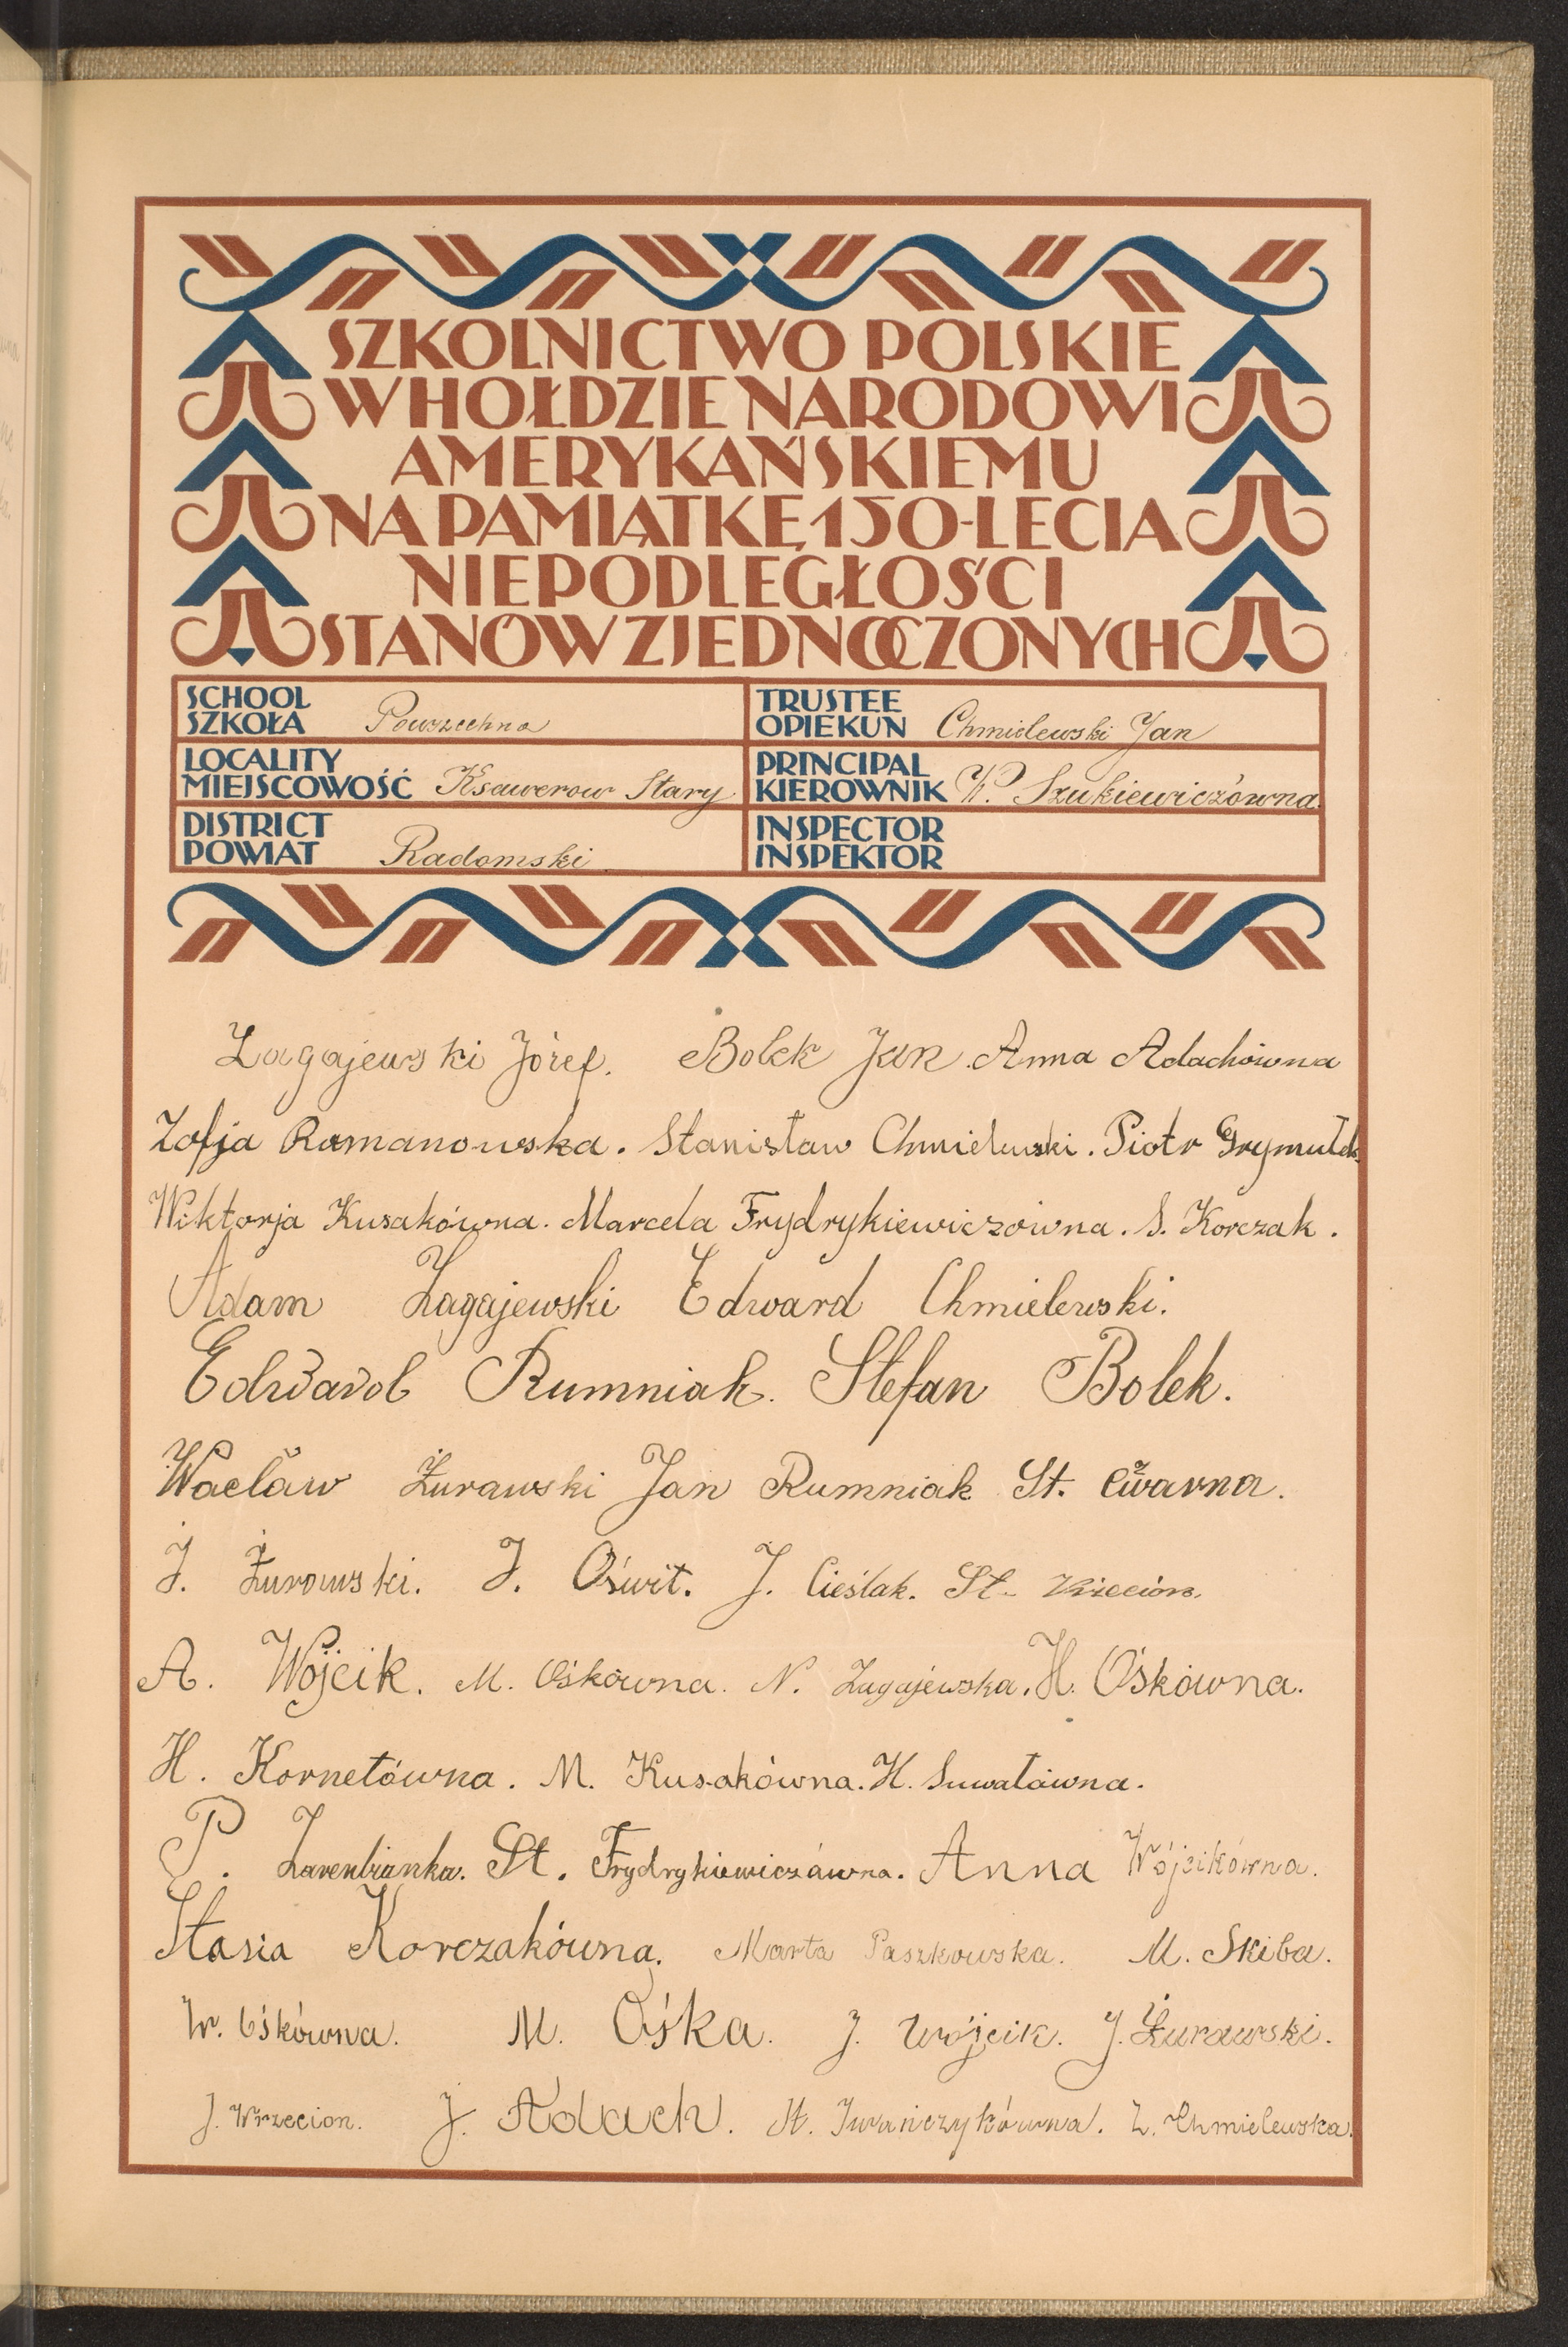 SZKOLNICTWO POLSKIE
W HOŁDZIE NARODOWI
AMERYKAŃSKIEMU
NA PAMIĄTKĘ 150-LECIA
NIEPODLEGŁOŚCI
STANÓW ZJEDNOCZONYCH
SCHOOL
SZKOŁA Powszechna
TRUSTEE
OPIEKUN Chmielewski Jan
LOCALITY
MIEJSCOWOŚĆ Ksawerow Stary
PRINCIPAL
KIEROWNIK W. Szukiewiczówna
DISTRICT
POWIAT Radomski
INSPECTOR
INSPEKTOR
Zagajewski Józef. Bolek Jan. Anna Adachówna
Zofja Romanowska. Stanisław Chmielewski. Piotr
Wiktorja Kusakówna. Marcela Frydrykiewiczówna. S. Korczak.
Adam Zagajewski Edward Chmielewski.
Edward Rumniak. Stefan Bolek.
Wacław Żurawski Jan Rumniak St. Cwarna.
J. Żurowski. J. Oświt. J. Cieślak. St.
A. Wójcik. M. Ośkówna. N. Zagajewska. H. Ośkówna.
H. Kornetówna. M. Kusakówna. H. Suwałówna.
P. St. Frydrykiewiczówna. Anna Wójcikówna.
Stasia Korczakówna. Marta Paszkowska. M. Skiba.
W. Ośkówna. M. Ośka. J. Wójcik. J. Żurawski.
J. Wrzecion. J. Adach. St. Iwańczykówna. Z. Chmielewska.